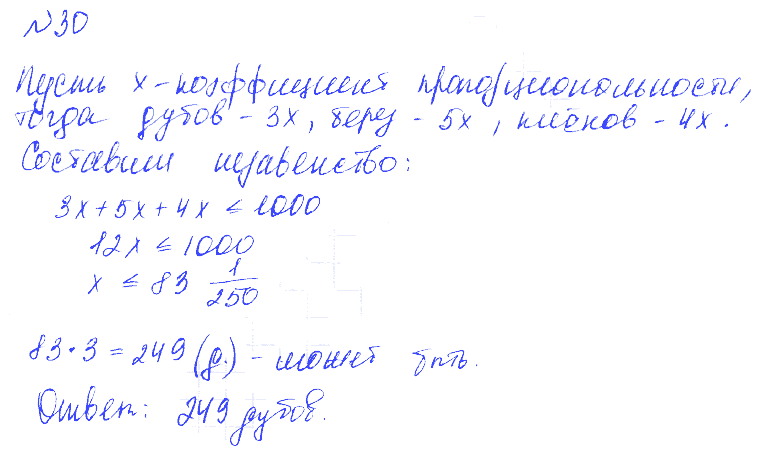 №30
Пусть x - коэффициент пропорциональности,
тогда дубов - 3x, берез - 5x, клёнов - 4x.
Составим неравенство:
3x + 5x + 4x ≤ 1000
12x ≤ 1000
x ≤ 83 1/250
83 · 3 = 249 (д.) - может быть.
Ответ: 249 дубов.